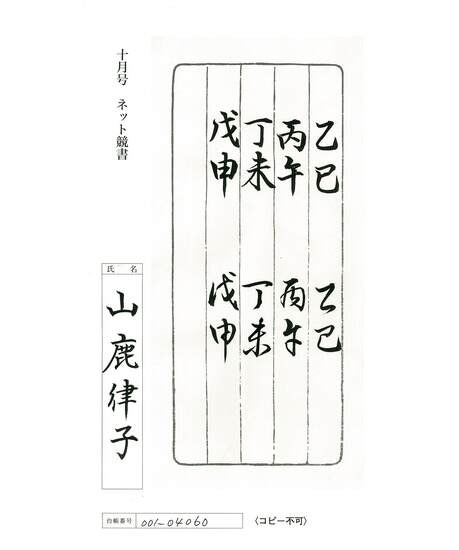 乙巳　乙巳
丙午　丙午
丁未　丁未
戊申　戊申
十月号　ネット競書
氏名
山鹿律子
台帳番号 001-04060
〈コピー不可〉